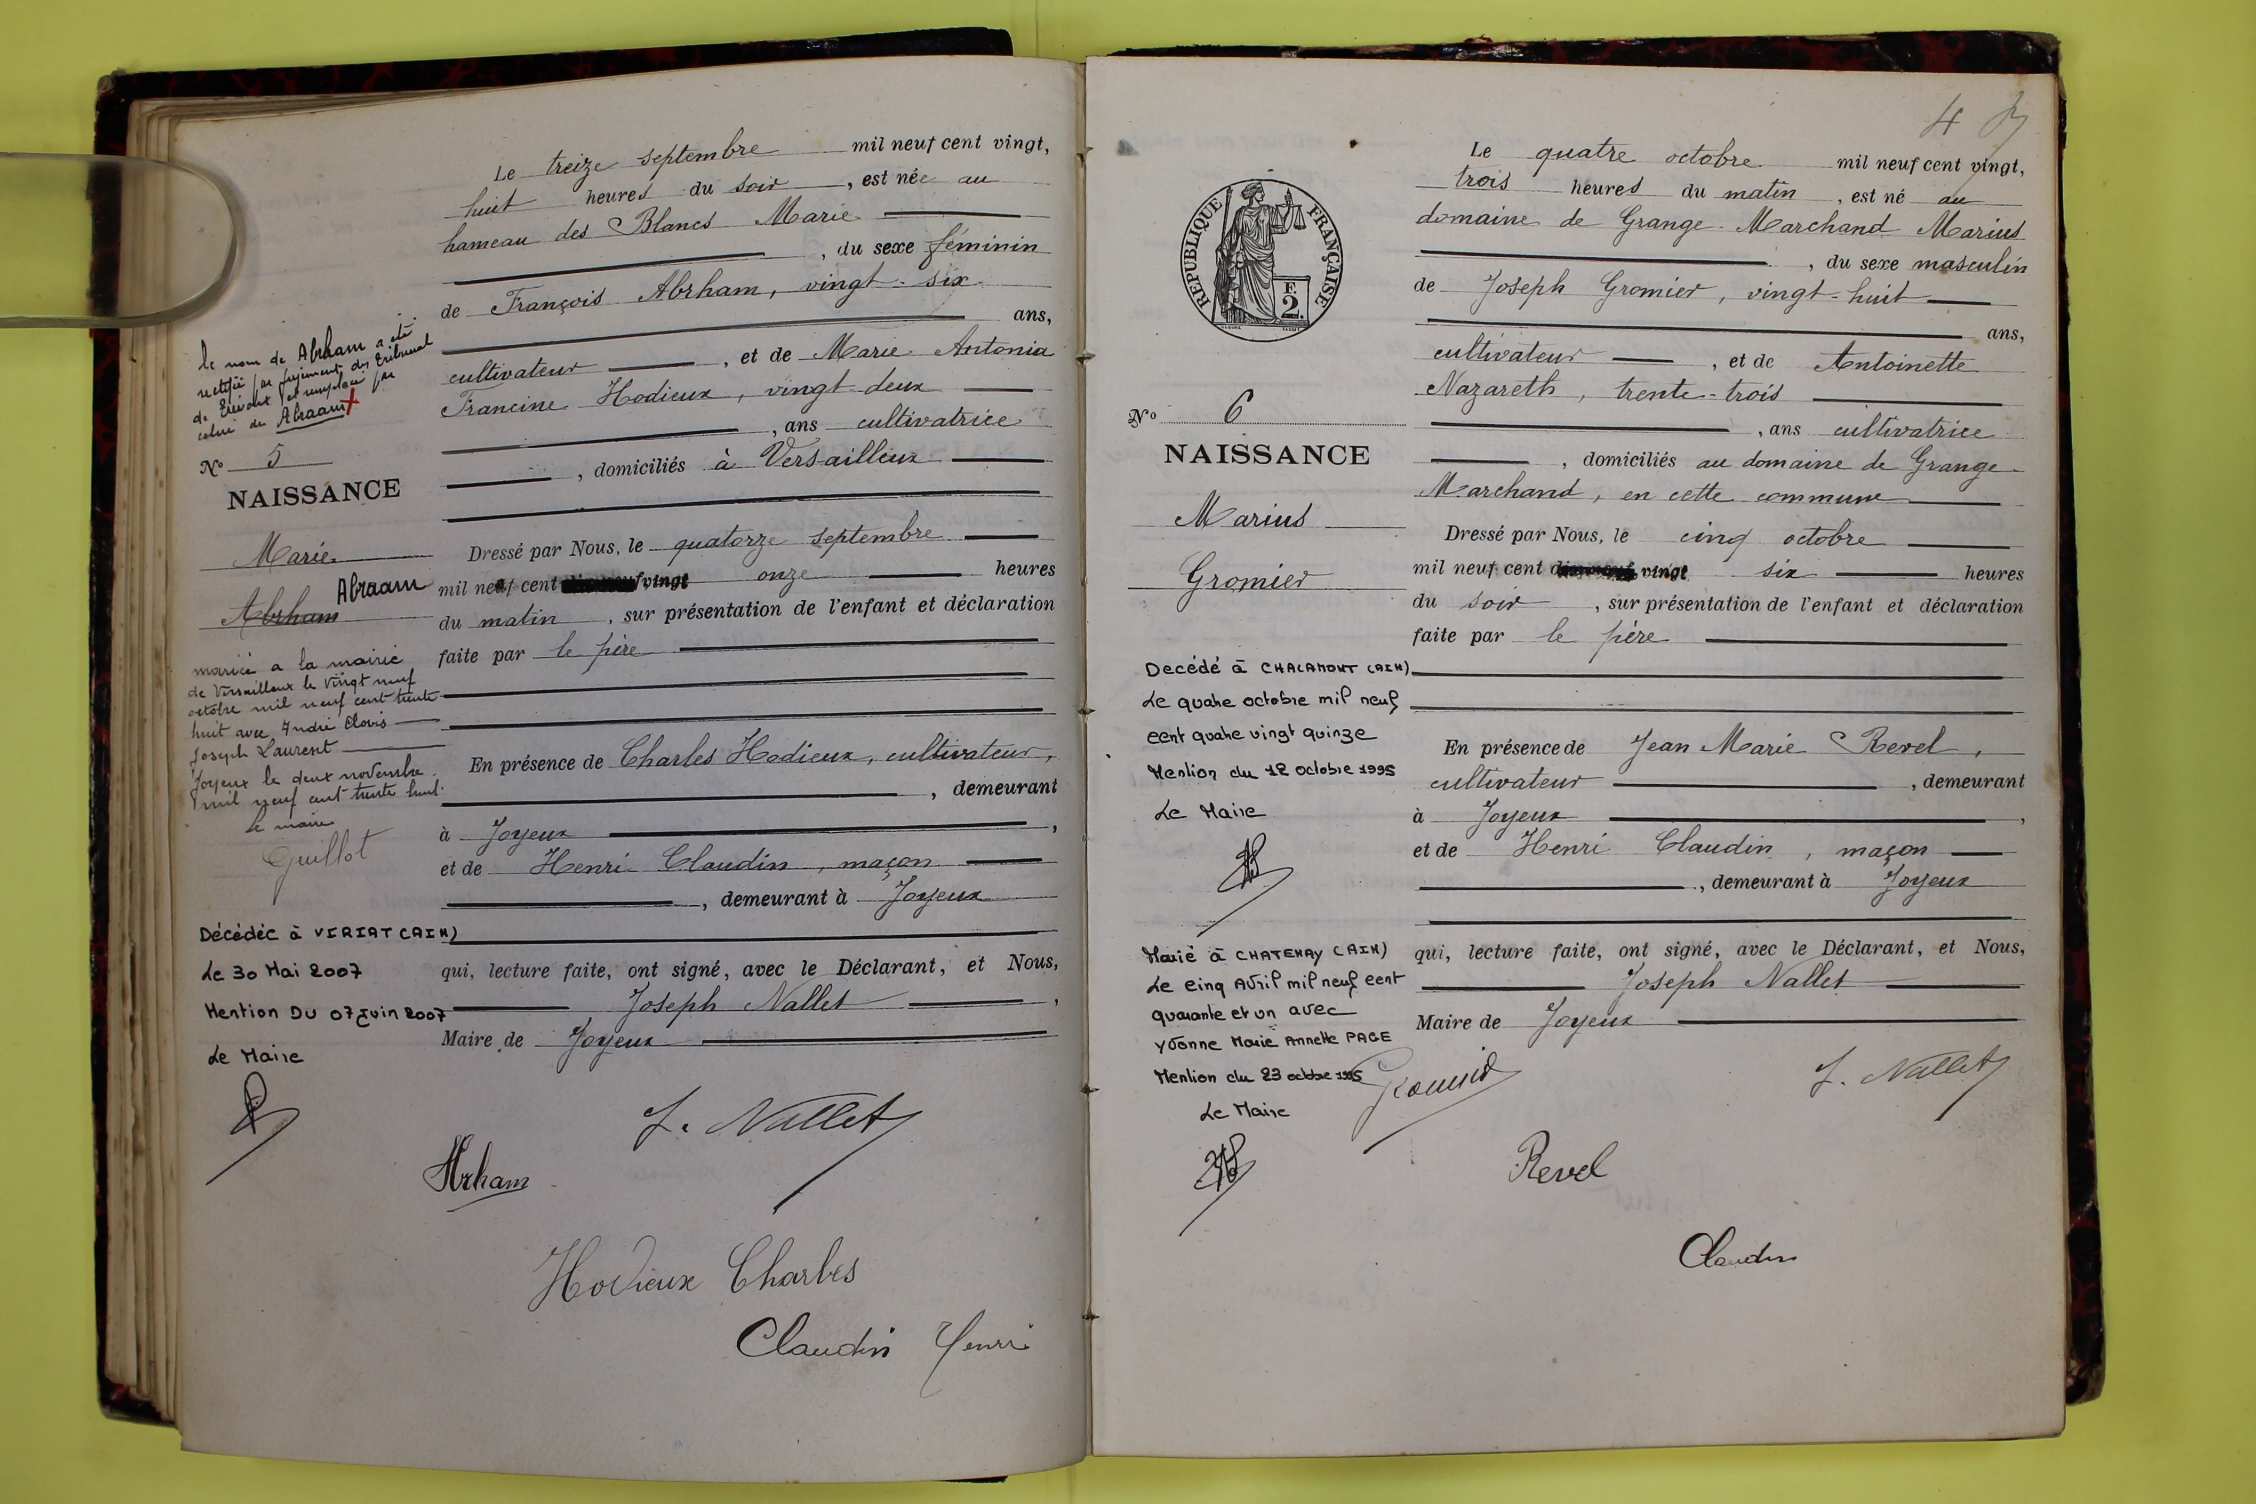 Le nom de Abrham a été
rectifié par jugement du tribunal
de Trévoux et remplacé par
celui de Abraam
N° 5
NAISSANCE
Marie
Abraam
Abrham
mariée a la mairie
de Versailleux le vingt neuf
octobre mil neuf cent trente
huit avec André Clovis
Joseph Laurent
Joyeux le deux novembre
mil neuf cent trente huit.
Le maire
Guillot
Décédée à VIRIAT (AIN)
Le 30 Mai 2007
Mention Du 07 Juin 2007
Le Maire
Le treize septembre mil neuf cent vingt,
huit heures du soir, est née au
hameau des Blancs Marie
, du sexe féminin
de François Abrham, vingt-six
ans,
cultivateur, et de Marie Antonia
Francine Hodieux, vingt-deux
, ans cultivatrice
, domiciliés à Versailleux
Dressé par Nous, le quatorze septembre
mil neuf cent vingt onze heures
du matin, sur présentation de l'enfant et déclaration
faite par le père
En présence de Charles Hodieux, cultivateur,
, demeurant
à Joyeux,
et de Henri Claudin, maçon
, demeurant à Joyeux
qui, lecture faite, ont signé, avec le Déclarant, et Nous,
Joseph Nallet,
Maire de Joyeux
J. Nallet
Abrham
Hodieux Charles
Claudin Henri
4
RÉPUBLIQUE FRANÇAISE
F.
2.
N° 6
NAISSANCE
Marius
Gromier
Decédé à CHALAMONT (AIN)
Le quatre octobre mil neuf
cent quatre vingt quinze
Mention du 12 octobre 1995
Le Maire
Marié à CHATENAY (AIN)
Le cinq Avril mil neuf cent
quarante et un avec
Yvonne Marie Annette PAGE
Mention du 23 octobre 1995
Le Maire
Le quatre octobre mil neuf cent vingt,
trois heures du matin, est né au
domaine de Grange-Marchand Marius
, du sexe masculin
de Joseph Gromier, vingt-huit
ans,
cultivateur, et de Antoinette
Nazareth, trente-trois
, ans cultivatrice
, domiciliés au domaine de Grange-
Marchand, en cette commune
Dressé par Nous, le cinq octobre
mil neuf cent vingt six heures
du soir, sur présentation de l'enfant et déclaration
faite par le père
En présence de Jean Marie Revel,
cultivateur, demeurant
à Joyeux,
et de Henri Claudin, maçon
, demeurant à Joyeux
qui, lecture faite, ont signé, avec le Déclarant, et Nous,
Joseph Nallet
Maire de Joyeux
Gromier
J. Nallet
Revel
Claudin